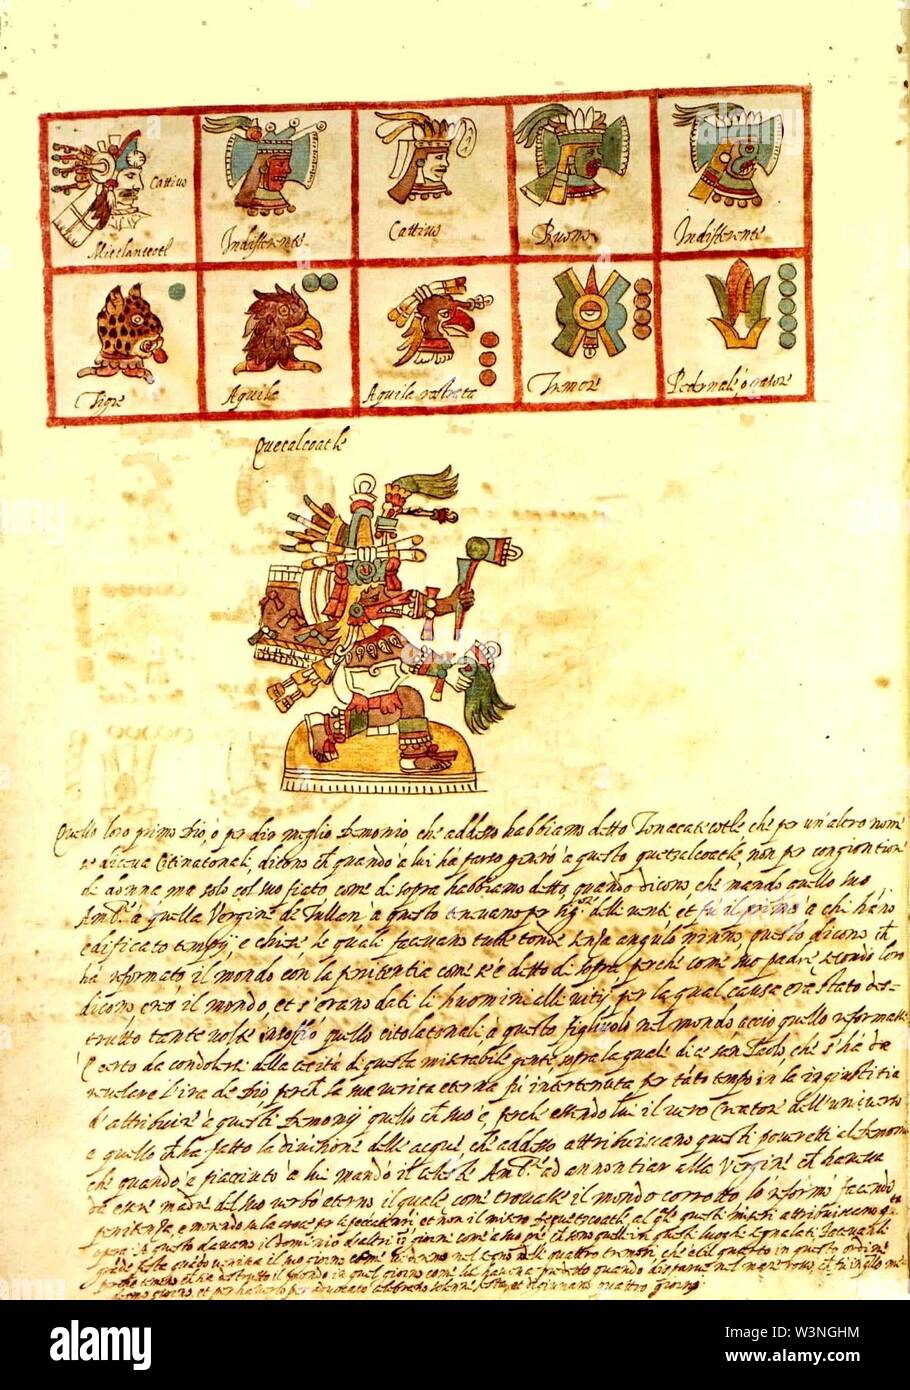 Cattiuo
Mictlantecotl
Indifferente
Cattiuo
Buono
Indifferente
Tigre
Aquila
Tremore
Quetalcoatle
Quello loro primo dio, o per dir meglio demonio che adesso habbiamo detto Tonacatecotle che per un'altro nome
se diceua Citinatonali, dicono ch quando à lui hà parso generò à questo quetzalcoatle, non per congiontione
de donna ma solo col suo fiato come di sopra habbiamo detto, quando dicono che mandò quello suo
Amb.re à quella Vergine de Tullan à questo teneuano per sig.re delli uenti et fù il primo à chi hano
edificato tempij, e chiese le quale faceuano tutte tonde senza angulo niuno, questo dicono ch
hà reformato il mondo con la penitentia come s'è detto di sopra perche come suo padre secondo loro
dicono creò il mondo, et s'erano dati li huomini alli uitij per la qual causa era stato des-
trutto tante uolte quello citolatonali à questo figliuolo nel mondo acciò quello reformasse
Certo da condolersi della cecità di questa miserabile gente, sopra la quale dice san Paolo, che s'hà da
reuelare l'ira de Dio perch la sua uerità eterna fù intertenuta per tàto tempo in la ingiustitia
d'attribuire à questi demonij quello ch suo è, perche essendo lui il uero Creatore dell'uniuerso
e quello ch hà fatto la diuisione delle acque, che adesso attribuiscano questi poueretti al demonio
che quando à piaciuto à lui mandò il celeste Amb.re ad annontiar alla Vergine ch haueua
da esser madre del suo uerbo eterno il quale come trouasse il mondo corrotto lo reformò facendo
penitenza, e morendo in la croce per li peccatori, et non il misero questi miseri attribuiscano
opera. A questo dauano il dominio d'altri 13 giorni come
quattro giorni
alamy
W3NGHM
www.alamy.com